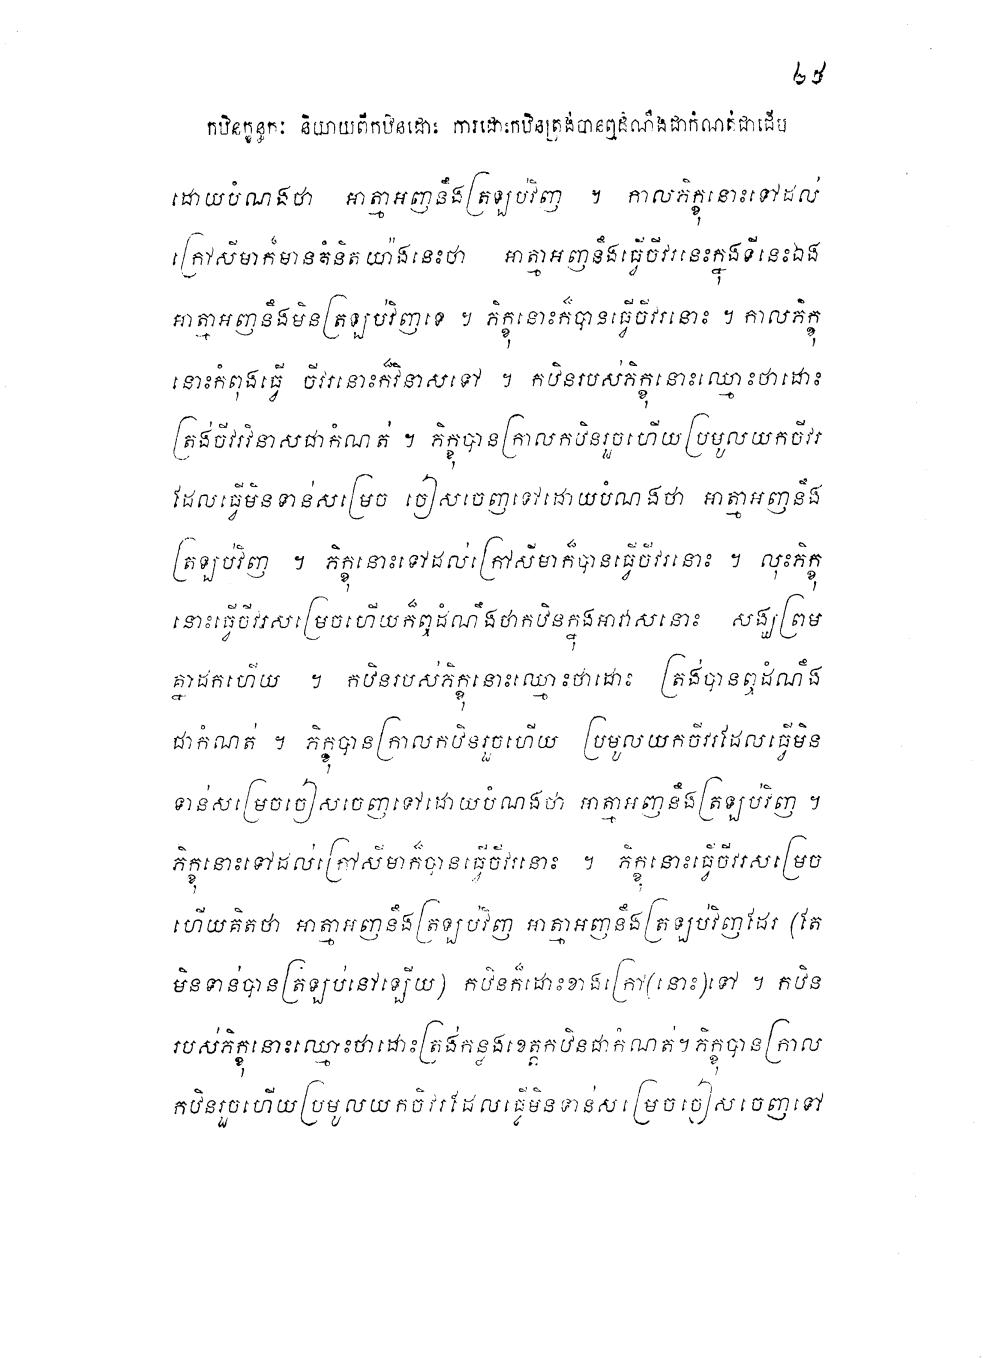 ៦៥
កឋិនក្ខន្ធកៈ និយាយពីកឋិនដោះ ការដោះកឋិនត្រង់បានឮដំណឹងជាកំណត់ជាដើម
ដោយបំណងថា អាត្មាអញនឹងត្រឡប់វិញ ។ កាលភិក្ខុនោះទៅដល់
ក្រៅសីមាក៏មានគំនិតយ៉ាងនេះថា អាត្មាអញនឹងធ្វើចីវរនេះក្នុងទីនេះឯង
អាត្មាអញនឹងមិនត្រឡប់វិញទេ ។ ភិក្ខុនោះក៏បានធ្វើចីវរនោះ ។ កាលភិក្ខុ
នោះកំពុងធ្វើ ចីវរនោះក៏វិនាសទៅ ។ កឋិនរបស់ភិក្ខុនោះឈ្មោះថាដោះ
ត្រង់ចីវរវិនាសជាកំណត់ ។ ភិក្ខុបានក្រាលកឋិនរួចហើយប្រមូលយកចីវរ
ដែលធ្វើមិនទាន់សម្រេច ចៀសចេញទៅដោយបំណងថា អាត្មាអញនឹង
ត្រឡប់វិញ ។ ភិក្ខុនោះទៅដល់ក្រៅសីមាក៏បានធ្វើចីវរនោះ ។ លុះភិក្ខុ
នោះធ្វើចីវរសម្រេចហើយក៏ឮដំណឹងថាកឋិនក្នុងអាវាសនោះ សង្ឃព្រម
គ្នាដកហើយ ។ កឋិនរបស់ភិក្ខុនោះឈ្មោះថាដោះ ត្រង់បានឮដំណឹង
ជាកំណត់ ។ ភិក្ខុបានក្រាលកឋិនរួចហើយ ប្រមូលយកចីវរដែលធ្វើមិន
ទាន់សម្រេចចៀសចេញទៅដោយបំណងថា អាត្មាអញនឹងត្រឡប់វិញ ។
ភិក្ខុនោះទៅដល់ក្រៅសីមាក៏បានធ្វើចីវរនោះ ។ ភិក្ខុនោះធ្វើចីវរសម្រេច
ហើយគិតថា អាត្មាអញនឹងត្រឡប់វិញ អាត្មាអញនឹងត្រឡប់វិញដែរ (តែ
មិនទាន់បានត្រឡប់នៅឡើយ) កឋិនក៏ដោះខាងក្រៅ(នោះ)ទៅ ។ កឋិន
របស់ភិក្ខុនោះឈ្មោះថាដោះត្រង់កន្លងខេត្តកឋិនជាកំណត់។ ភិក្ខុបានក្រាល
កឋិនរួចហើយប្រមូលយកចីវរដែលធ្វើមិនទាន់សម្រេចចៀសចេញទៅ